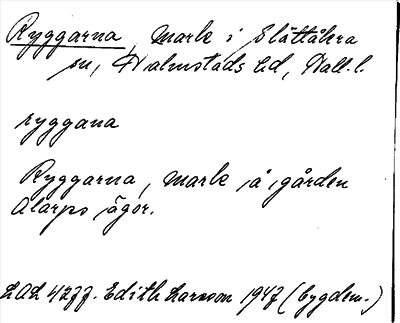 Ryggarna, mark i Slättåkra
sn, Halmstads hd, Hall. l.
ryggana
Ryggarna, mark å gården
Alarps ägor.
LAL 4277. Edith Larsson 1947 (bygdem.)